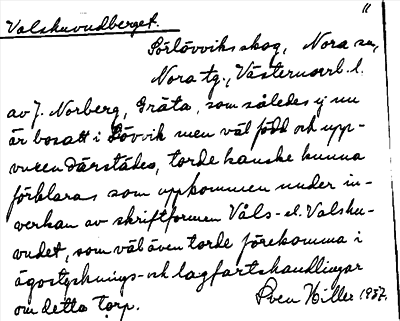 Valskuvudberget.
11
Sörlövviks skog, Nora sn,
Nora tg., Västernorrl. l.
av J. Norberg, Gräta, som således ej nu
är bosatt i Lövvik men väl född och upp-
vuxen därstädes, torde kanske kunna
förklaras som uppkommen under in-
verkan av skriftformen Våls- el. Valshu-
vudet, som väl även torde förekomma i
ägostycknings- och lagfartshandlingar
om detta torp.
Sven Hiller 1937.